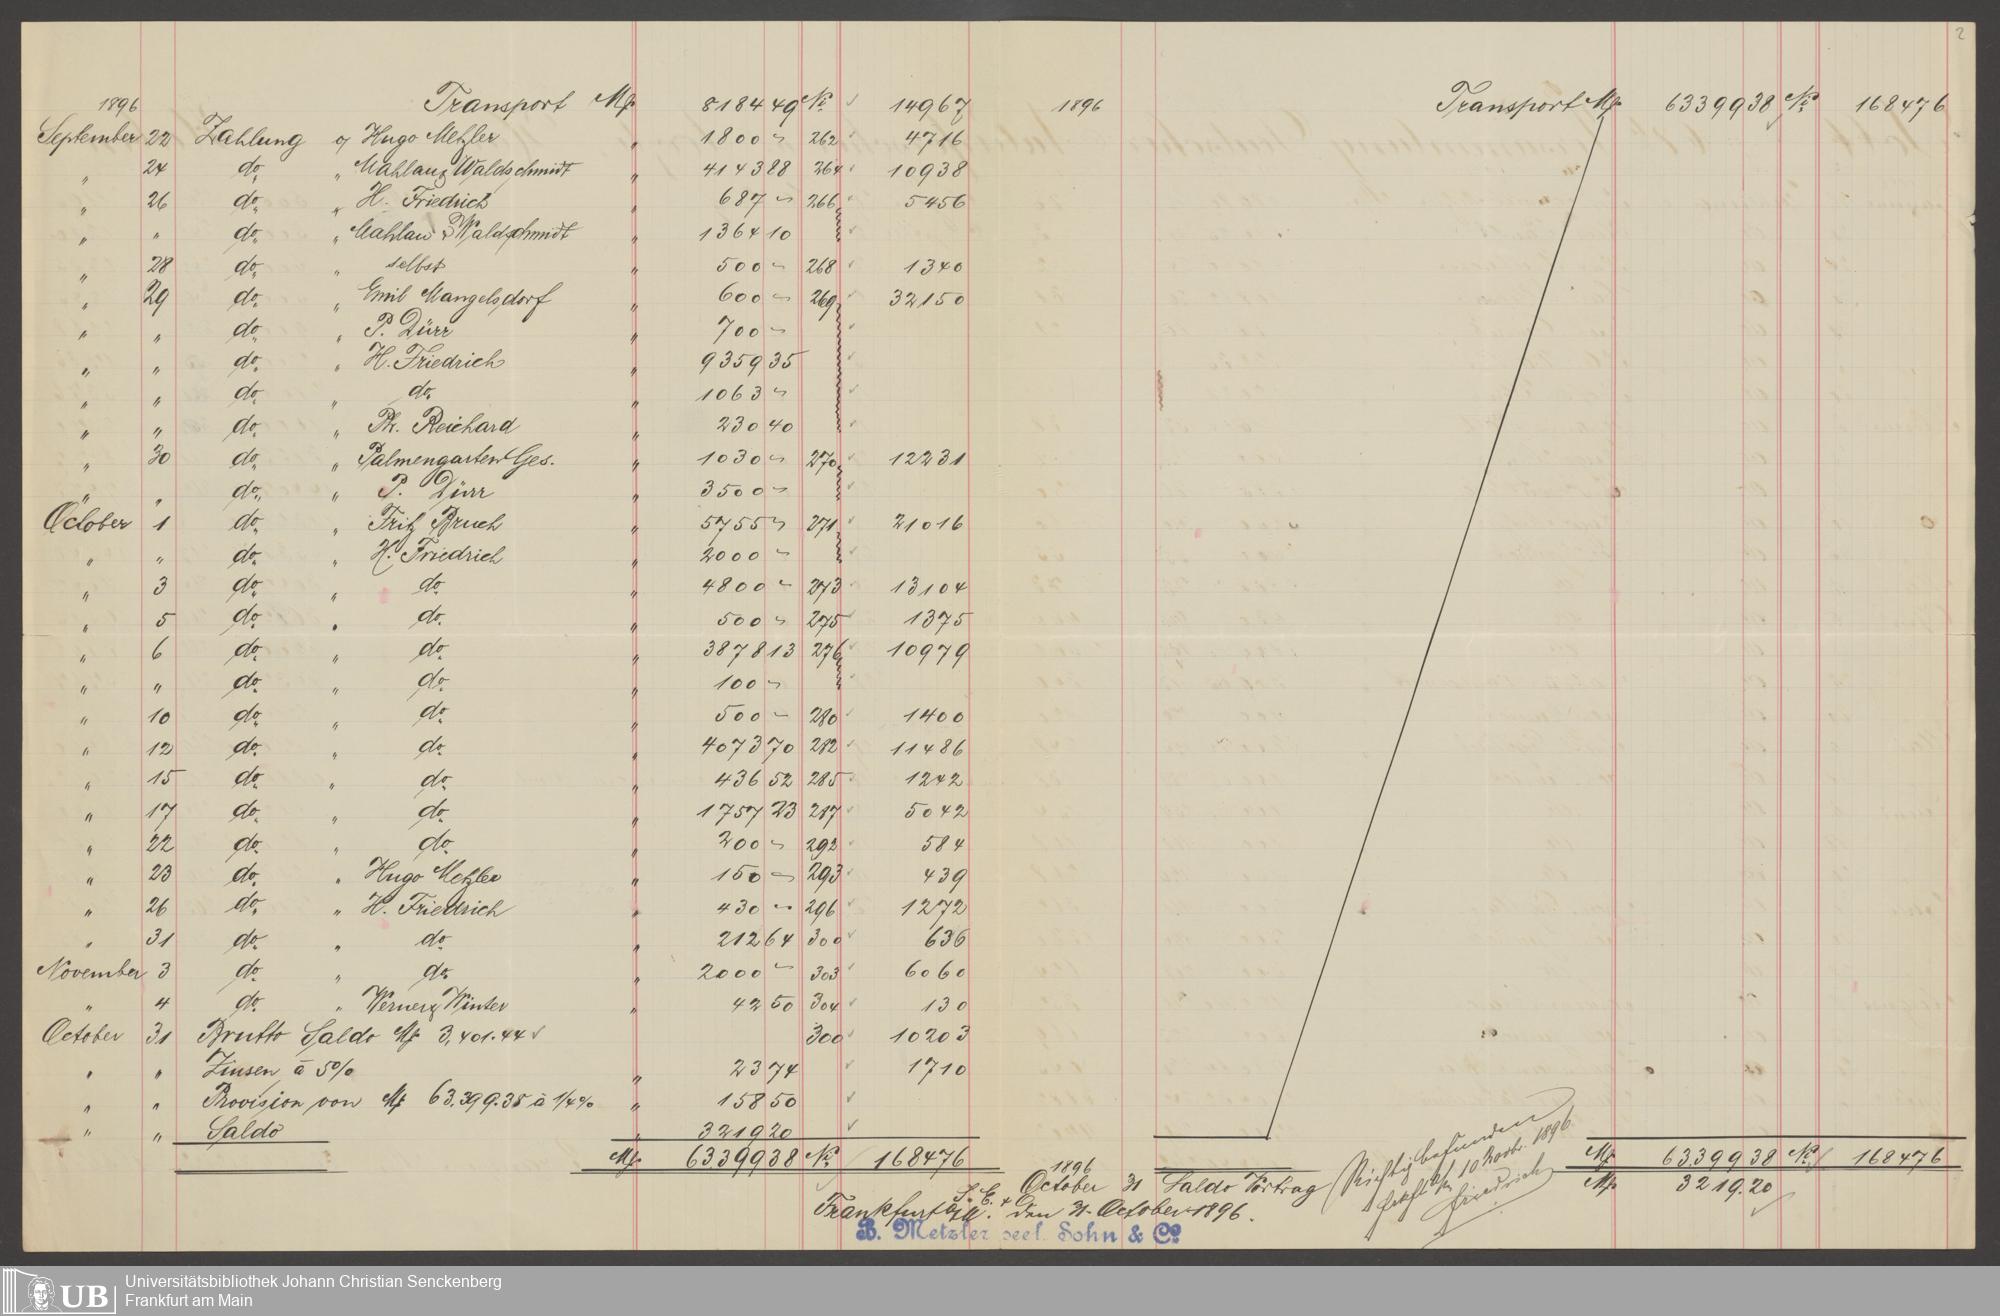 2
1896 Transport Mk 8184 49 No ✓ 14967
September 22 Zahlung a/ Hugo Metzler " 1800 ~ 262 4716
" 24 do. " Mahlau & Waldschmidt " 4143 88 264 ✓ 10938
" 26 do. " H. Friedrich " 687 ~ 266 ✓ 5456
" " do. " Mahlau & Waldschmidt " 1364 10 ✓
" 28 do. " selbst " 500 ~ 268 ✓ 1340
" 29 do. " Emil Mangelsdorf " 600 ~ 269 ✓ 32150
" " do. " P. Dürr " 700 ~ ✓
" " do. " H. Friedrich " 9359 35 ✓
" " do. " do. " 1063 ~ ✓
" " do. " Ph. Reichard " 230 40 ✓
" 30 do. " Palmengarten Ges. " 1030 ~ 270 ✓ 12231
" " do. " P. Dürr " 3500 ~ ✓
October 1 do. " Fritz Bruch " 5755 ~ 271 ✓ 21016
" " do. " H. Friedrich " 2000 ~ ✓
" 3 do. " do. " 4800 ~ 273 ✓ 13104
" 5 do. " do. " 500 ~ 275 1375
" 6 do. " do. " 3878 13 276 10979
" " do. " do. " 100 ~ ✓
" 10 do. " do. " 500 ~ 280 ✓ 1400
" 12 do. " do. " 4073 70 282 ✓ 11486
" 15 do. " do. " 436 52 285 ✓ 1242
" 17 do. " do. " 1757 23 287 ✓ 5042
" 22 do. " do. " 200 ~ 292 ✓ 584
" 23 do. " Hugo Metzler " 150 ~ 293 ✓ 439
" 26 do. " H. Friedrich " 430 ~ 296 ✓ 1272
" 31 do. " do. " 212 64 300 ✓ 636
November 3 do. " do. " 2000 ~ 303 ✓ 6060
" 4 do. " Werner & Winter " 42 50 304 ✓ 130
October 31 Brutto Saldo Mk 3,401.44 ✓ 300 ✓ 10203
" " Zinsen à 5% " 23 74 ✓ 1710
" " Provision von Mk 63.399.38 à 1/4% " 158 50 ✓
" " Saldo " 3219 20 ✓
Mk 63.399 38 No 168476
1896 Transport Mk 63399 38 No 168476
Mk 63.399 38 No 168476
1896
October 31 Saldo Vortrag Mk 3219.20
S. E. &
Frankfurt a/M. den 31. October 1896.
B. Metzler seel. Sohn & Co.
Richtig befunden
10 Novbr. 1896.
Friedrich
UB Universitätsbibliothek Johann Christian Senckenberg
Frankfurt am Main